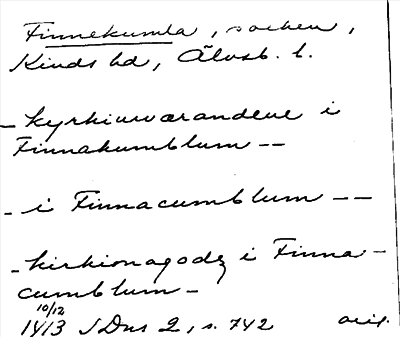 Finnekumla, socken,
Kinds hd, Älvsb. l.
- kyrkiuwarandene i
Finnakumblum --
- i Finnacumblum --
- kirkionagodz i Finna-
cumblum -
10/12
1413 SDns 2, s. 742 orig.